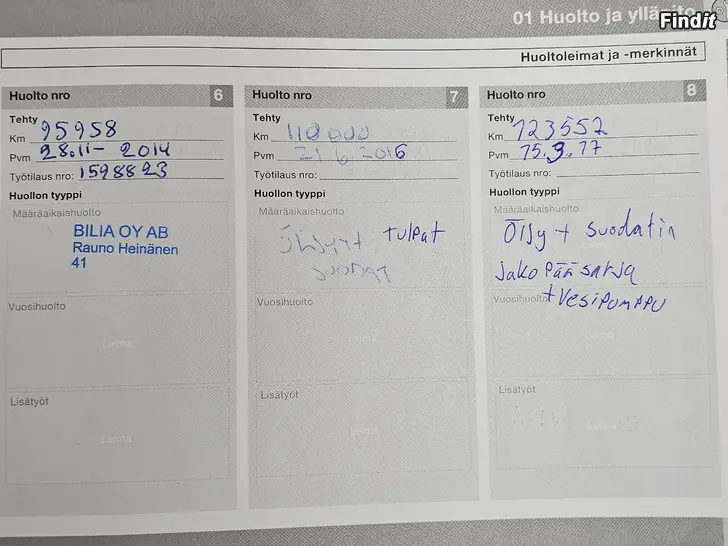 01 Huolto ja ylläpito
Findit
Huoltoleimat ja -merkinnät
Huolto nro 6
Tehty
Km 95958
Pvm 28.11- 2014
Työtilaus nro: 1598823
Huollon tyyppi
Määräaikaishuolto
BILIA OY AB
Rauno Heinänen
41
Vuosihuolto
Leima
Lisätyöt
Leima
Huolto nro 7
Tehty
Km 110 000
Pvm 21 6 2016
Työtilaus nro:
Huollon tyyppi
Määräaikaishuolto
tulpat
Vuosihuolto
Leima
Lisätyöt
Leima
Huolto nro 8
Tehty
Km 123552
Pvm 15.9.17
Työtilaus nro:
Huollon tyyppi
Määräaikaishuolto
Öljy + suodatin
jakopääsarja
Vuosihuolto
+ vesipumppu
Leima
Lisätyöt
Leima